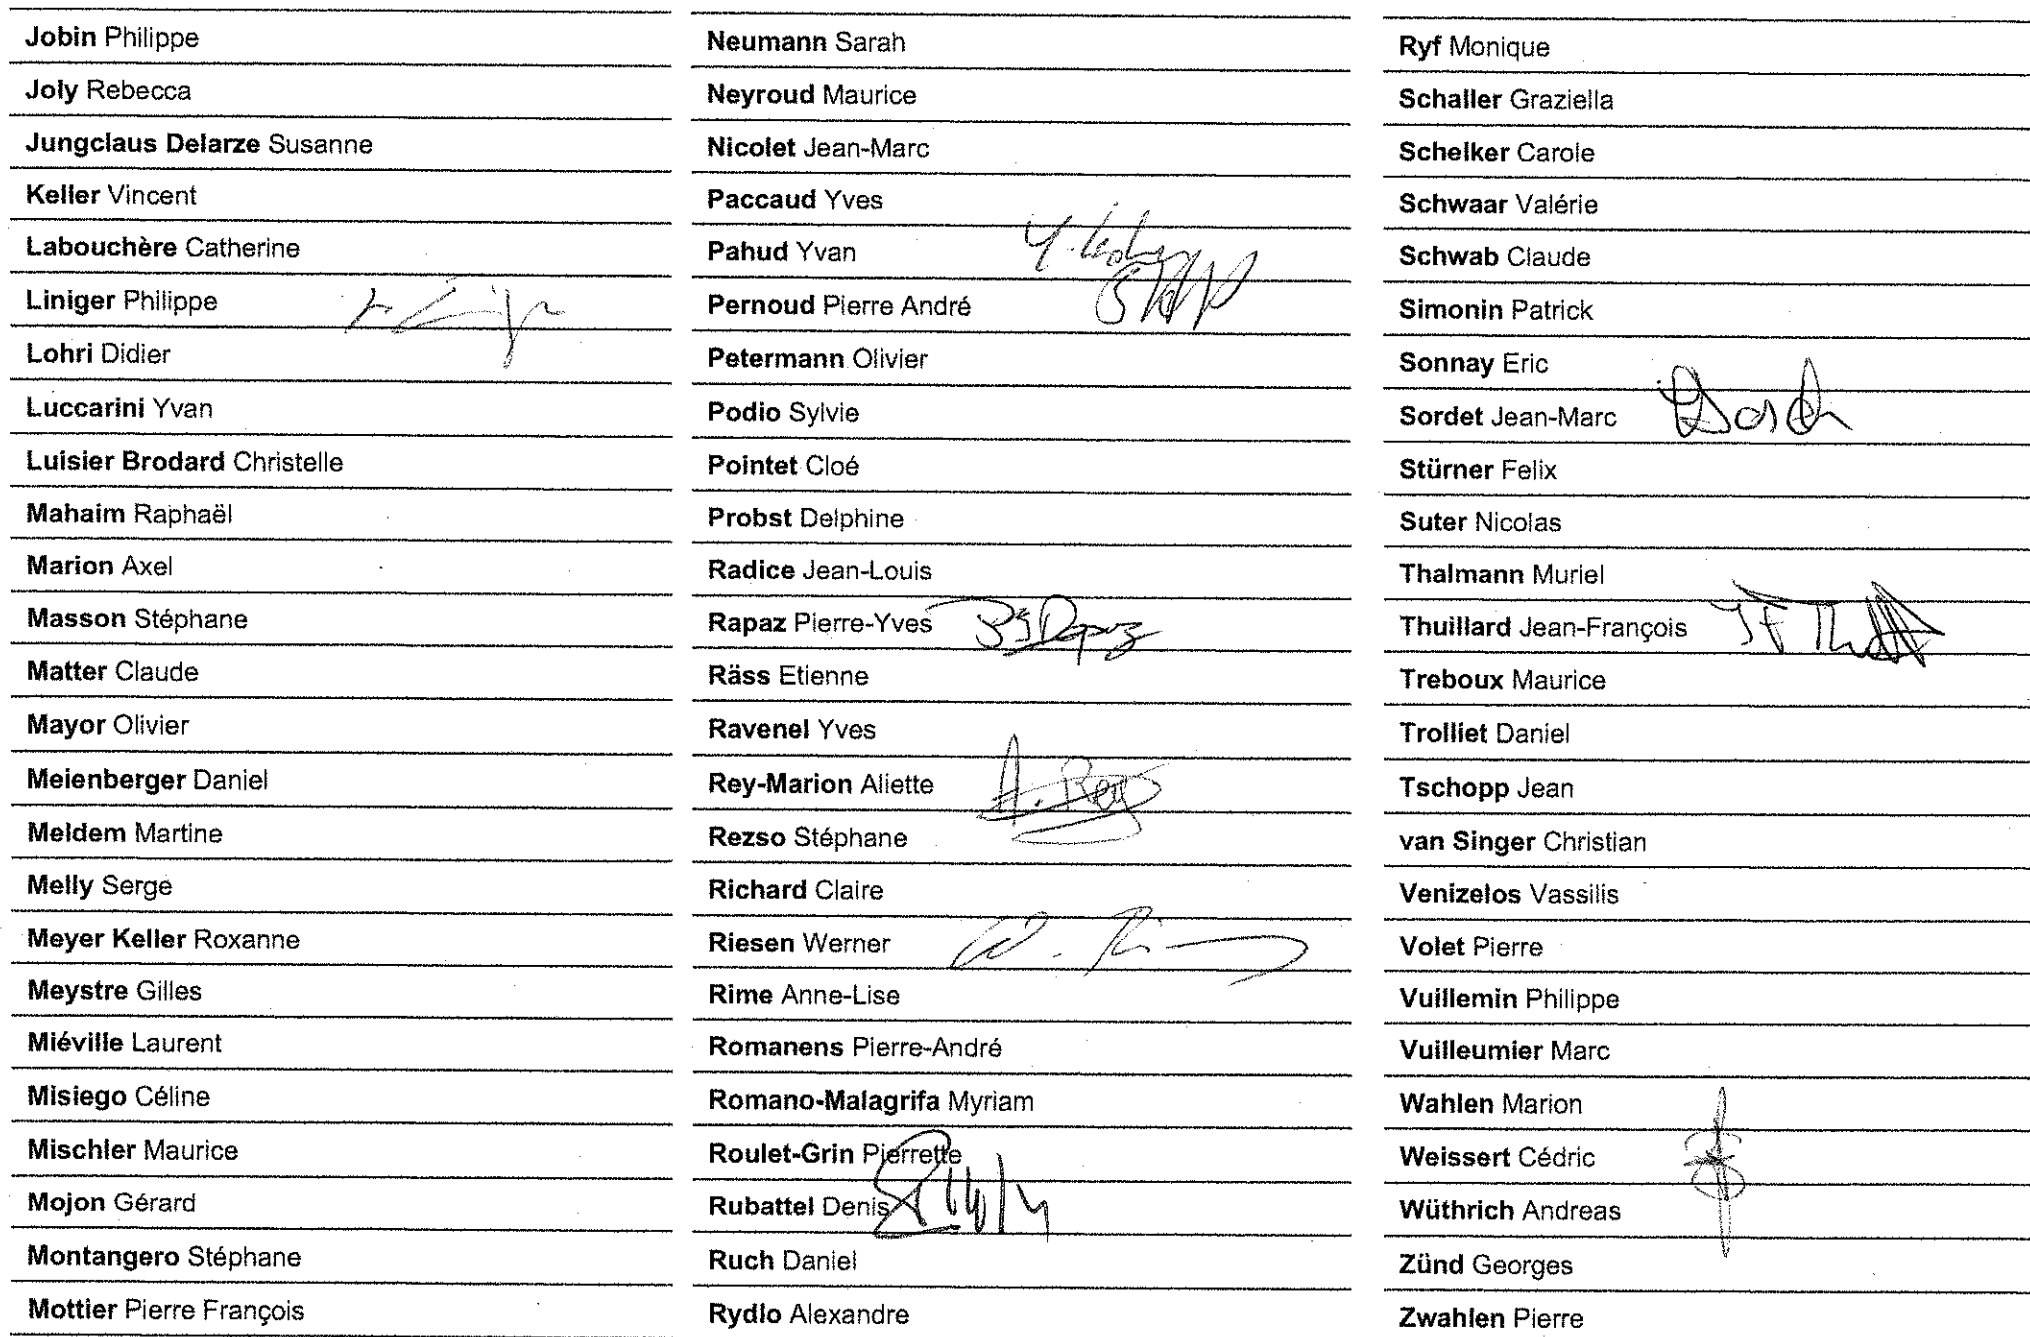 Jobin Philippe
Joly Rebecca
Jungclaus Delarze Susanne
Keller Vincent
Labouchère Catherine
Liniger Philippe
Lohri Didier
Luccarini Yvan
Luisier Brodard Christelle
Mahaim Raphaël
Marion Axel
Masson Stéphane
Matter Claude
Mayor Olivier
Meienberger Daniel
Meldem Martine
Melly Serge
Meyer Keller Roxanne
Meystre Gilles
Miéville Laurent
Misiego Céline
Mischler Maurice
Mojon Gérard
Montangero Stéphane
Mottier Pierre François
Neumann Sarah
Neyroud Maurice
Nicolet Jean-Marc
Paccaud Yves
Pahud Yvan
Pernoud Pierre André
Petermann Olivier
Podio Sylvie
Pointet Cloé
Probst Delphine
Radice Jean-Louis
Rapaz Pierre-Yves PYRapaz
Räss Etienne
Ravenel Yves
Rey-Marion Aliette A. Rey
Rezso Stéphane
Richard Claire
Riesen Werner
Rime Anne-Lise
Romanens Pierre-André
Romano-Malagrifa Myriam
Roulet-Grin Pierrette
Rubattel Denis
Ruch Daniel
Rydlo Alexandre
Ryf Monique
Schaller Graziella
Schelker Carole
Schwaar Valérie
Schwab Claude
Simonin Patrick
Sonnay Eric
Sordet Jean-Marc
Stürner Felix
Suter Nicolas
Thalmann Muriel
Thuillard Jean-François
Treboux Maurice
Trolliet Daniel
Tschopp Jean
van Singer Christian
Venizelos Vassilis
Volet Pierre
Vuillemin Philippe
Vuilleumier Marc
Wahlen Marion
Weissert Cédric
Wüthrich Andreas
Zünd Georges
Zwahlen Pierre